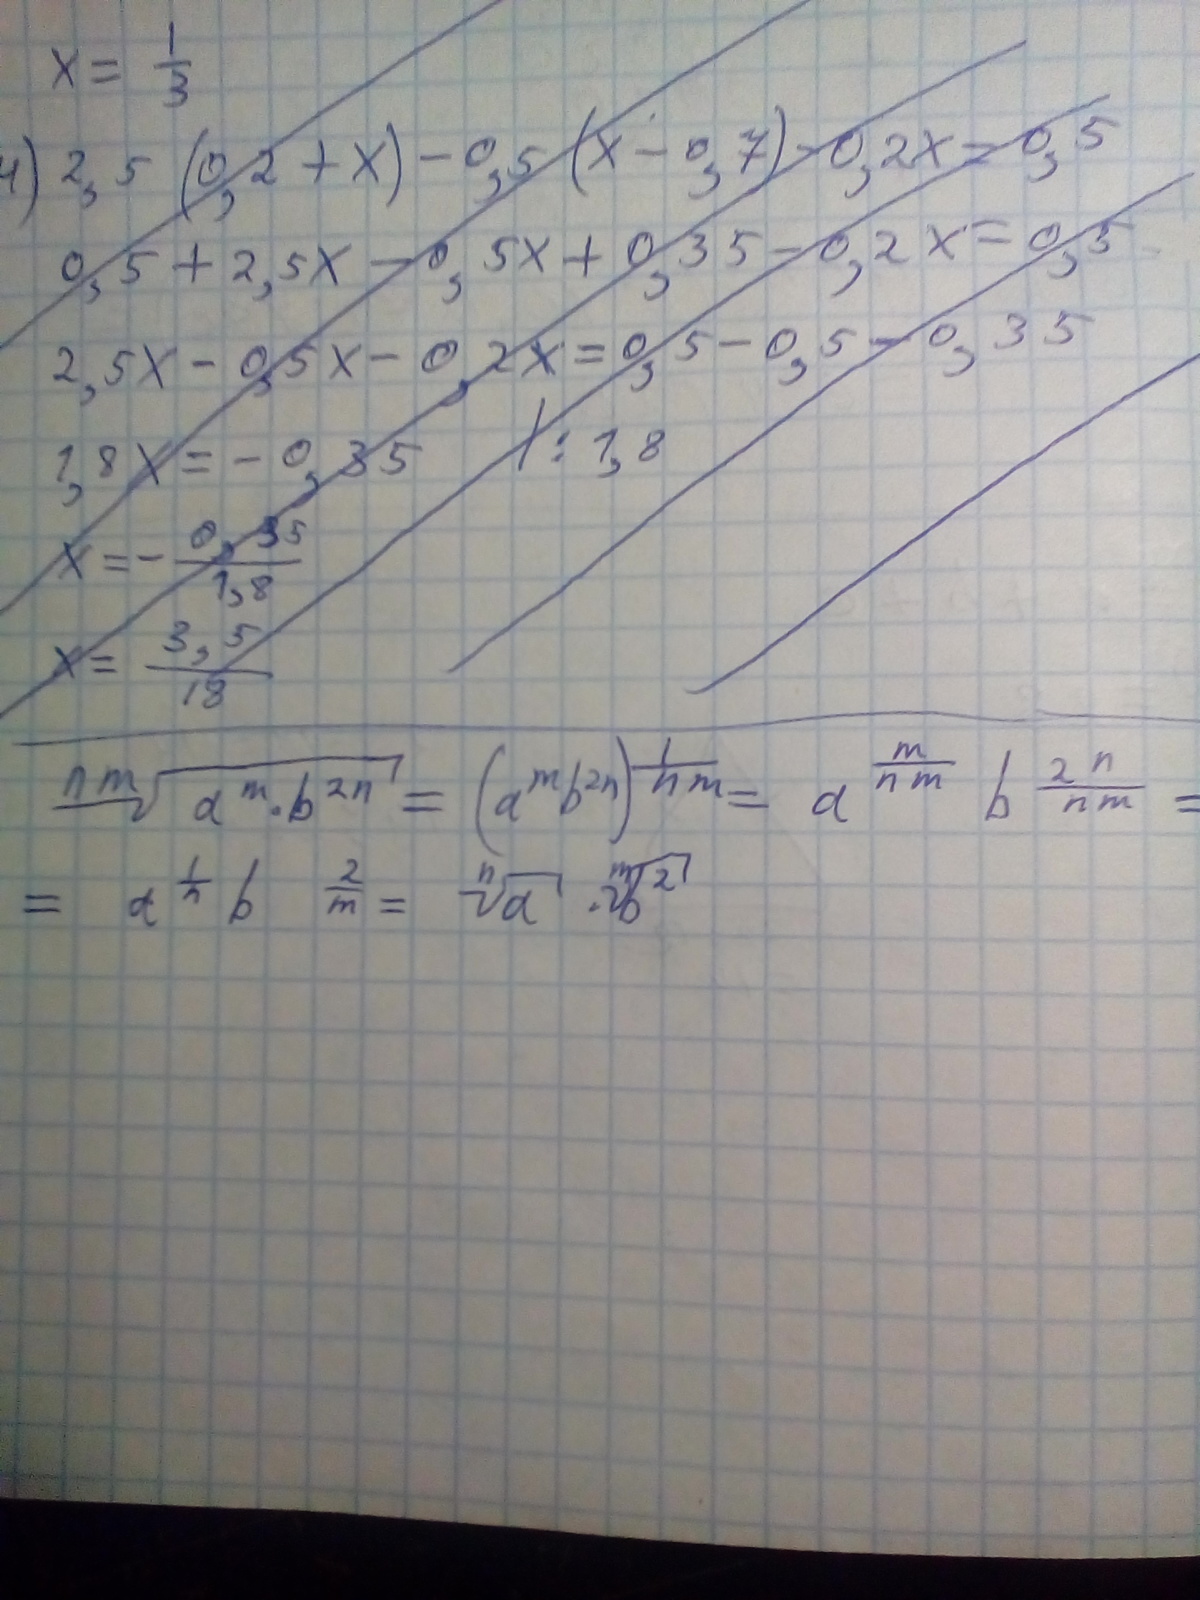 x = 1/3
4) 2,5 (0,2 + x) - 0,5 (x - 0,7) - 0,2x = 0,5
0,5 + 2,5x - 0,5x + 0,35 - 0,2x = 0,5
2,5x - 0,5x - 0,2x = 0,5 - 0,5 - 0,35
1,8x = - 0,35 | : 1,8
x = - 0,35/1,8
x = 3,5/18
ⁿᵐ√(a^m · b^(2n)) = (a^m b^(2n))^(1/(nm)) = a^(m/(nm)) b^(2n/(nm)) =
= a^(1/n) b^(2/m) = ⁿ√a · ᵐ√(b^2)